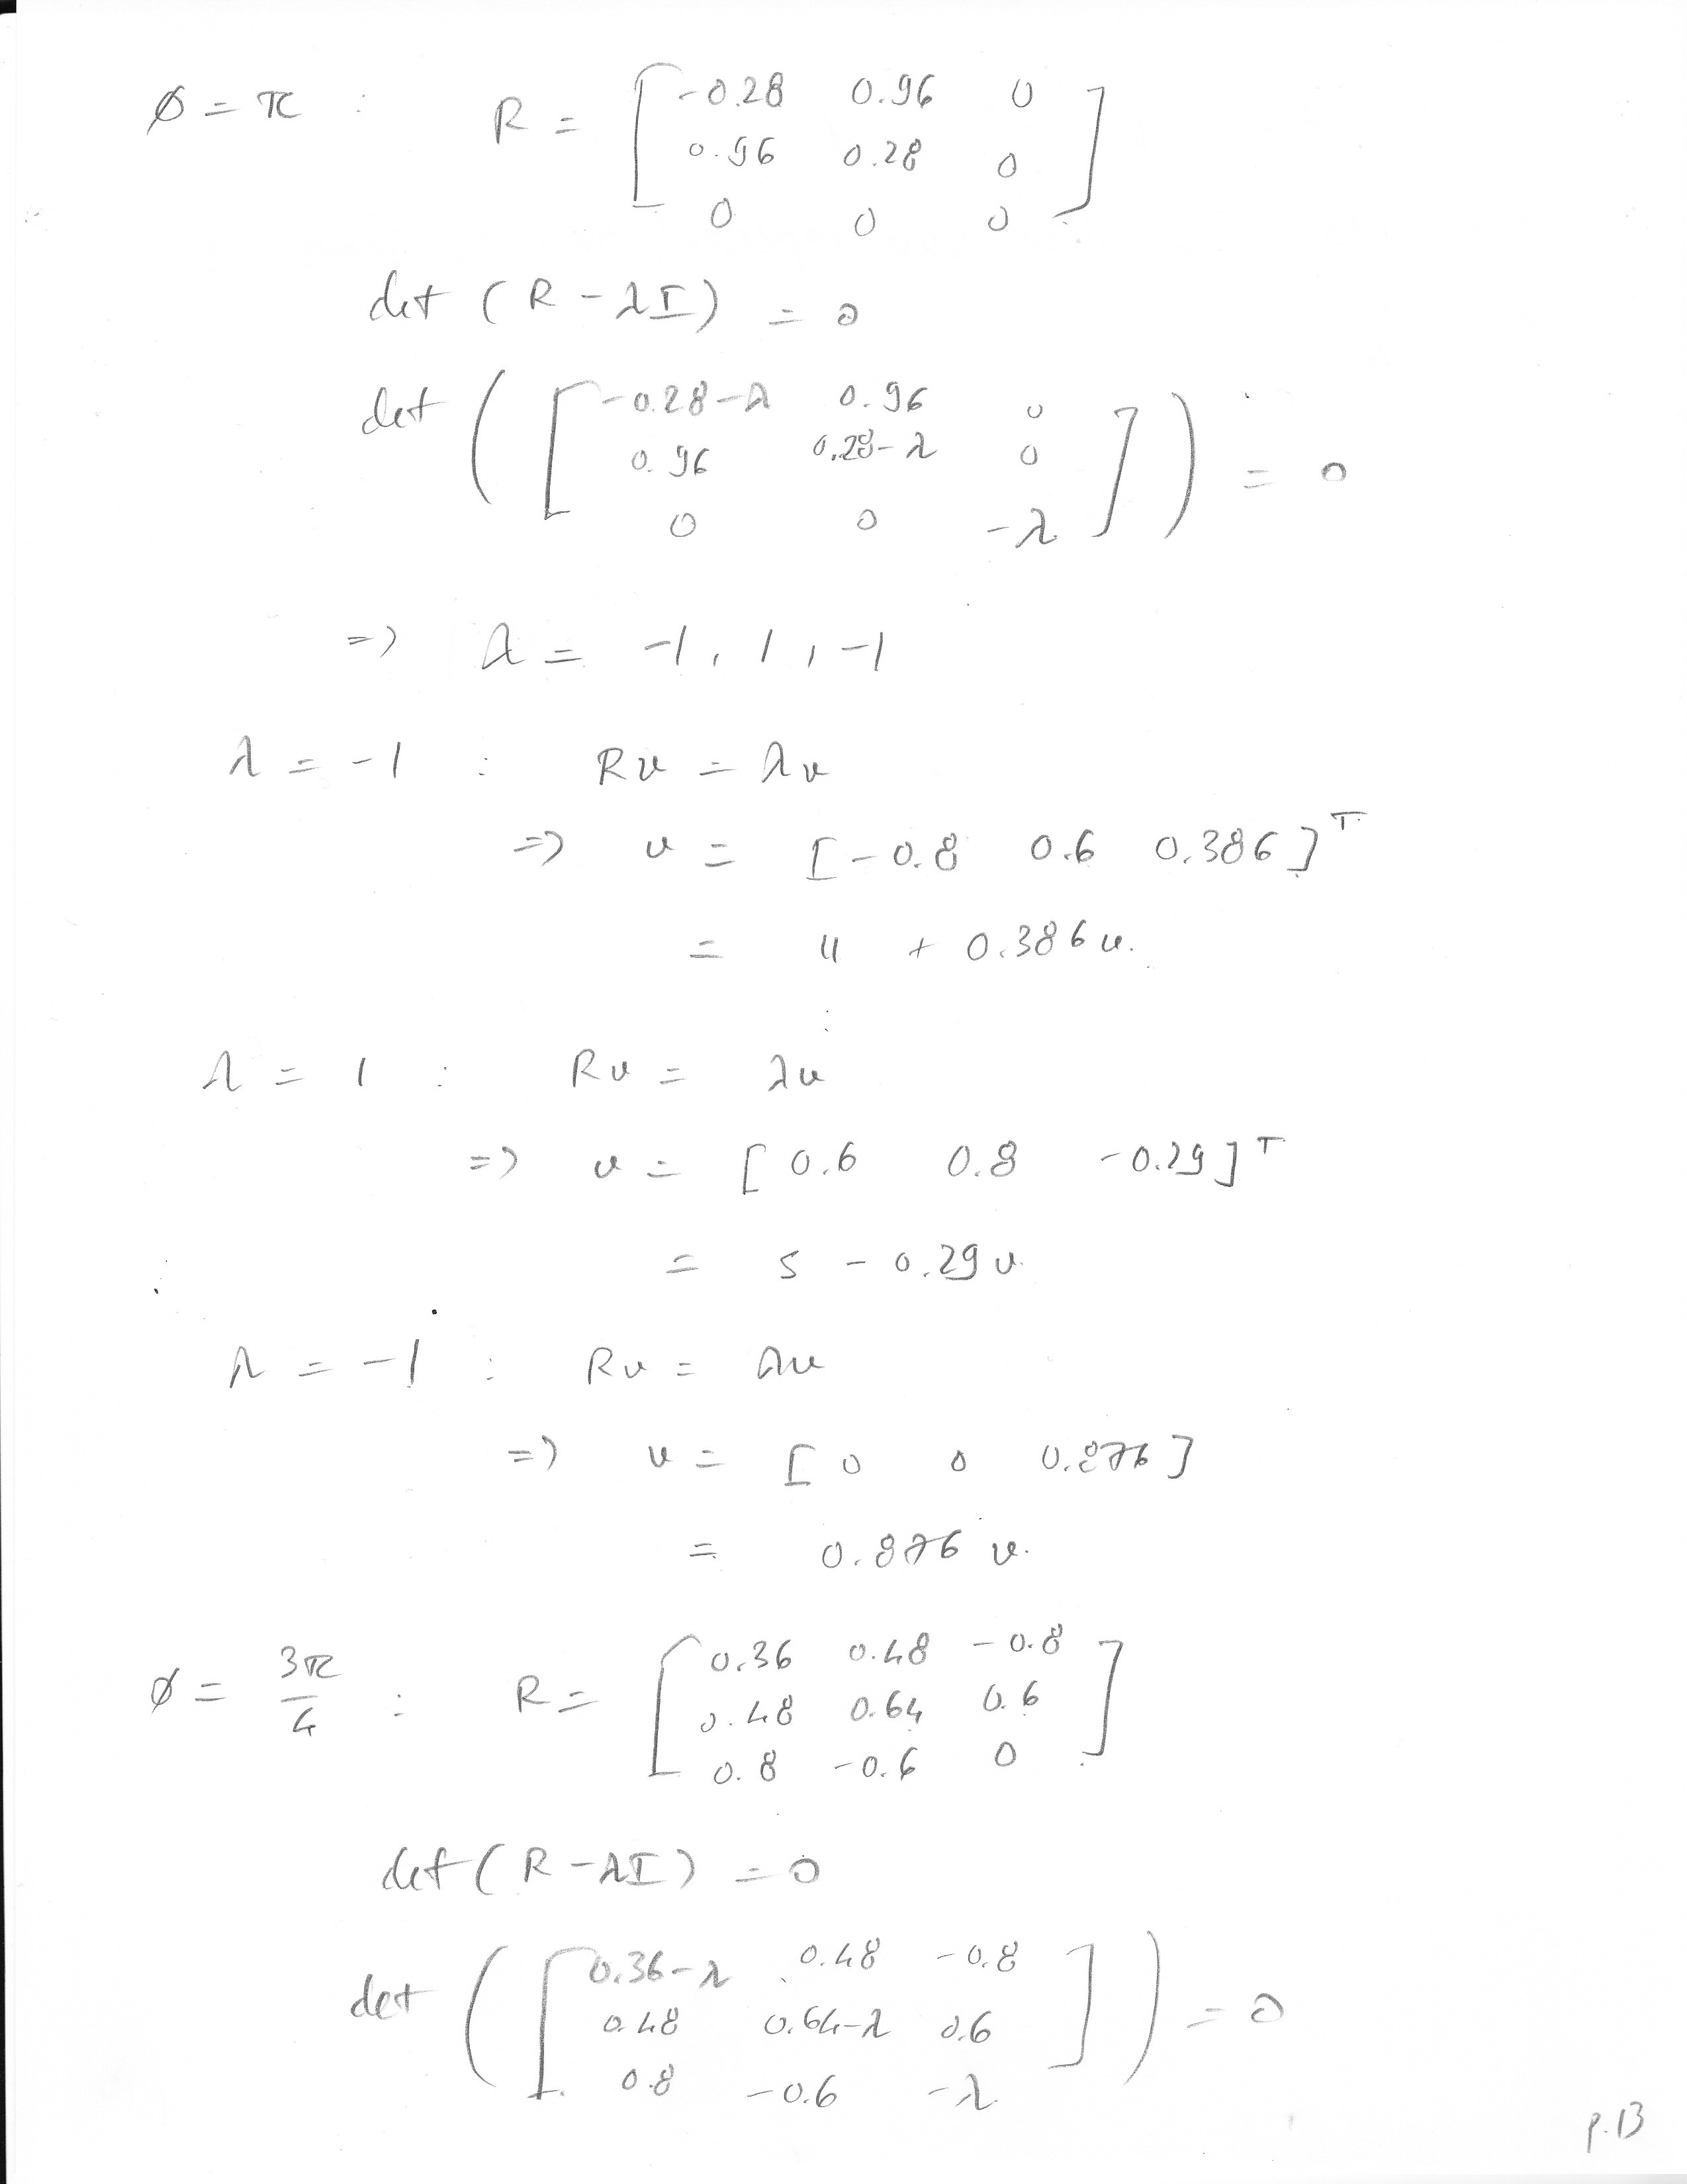 ø = π : R = [ -0.28 0.96 0
0.96 0.28 0
0 0 0 ]
det (R - λI) = 0
det ( [ -0.28-λ 0.96 0
0.96 0.28-λ 0
0 0 -λ ] ) = 0
=> λ = -1, 1, -1
λ = -1 : Rv = λv
=> v = [ -0.8 0.6 0.386 ]ᵀ
= u + 0.386 v.
λ = 1 : Rv = λv
=> v = [ 0.6 0.8 -0.29 ]ᵀ
= s - 0.29 v
λ = -1 : Rv = λv
=> v = [ 0 0 0.876 ]
= 0.876 v.
ø = 3π/4 : R = [ 0.36 0.48 -0.8
0.48 0.64 0.6
0.8 -0.6 0 ]
det (R - λI) = 0
det ( [ 0.36-λ 0.48 -0.8
0.48 0.64-λ 0.6
0.8 -0.6 -λ ] ) = 0
p.13